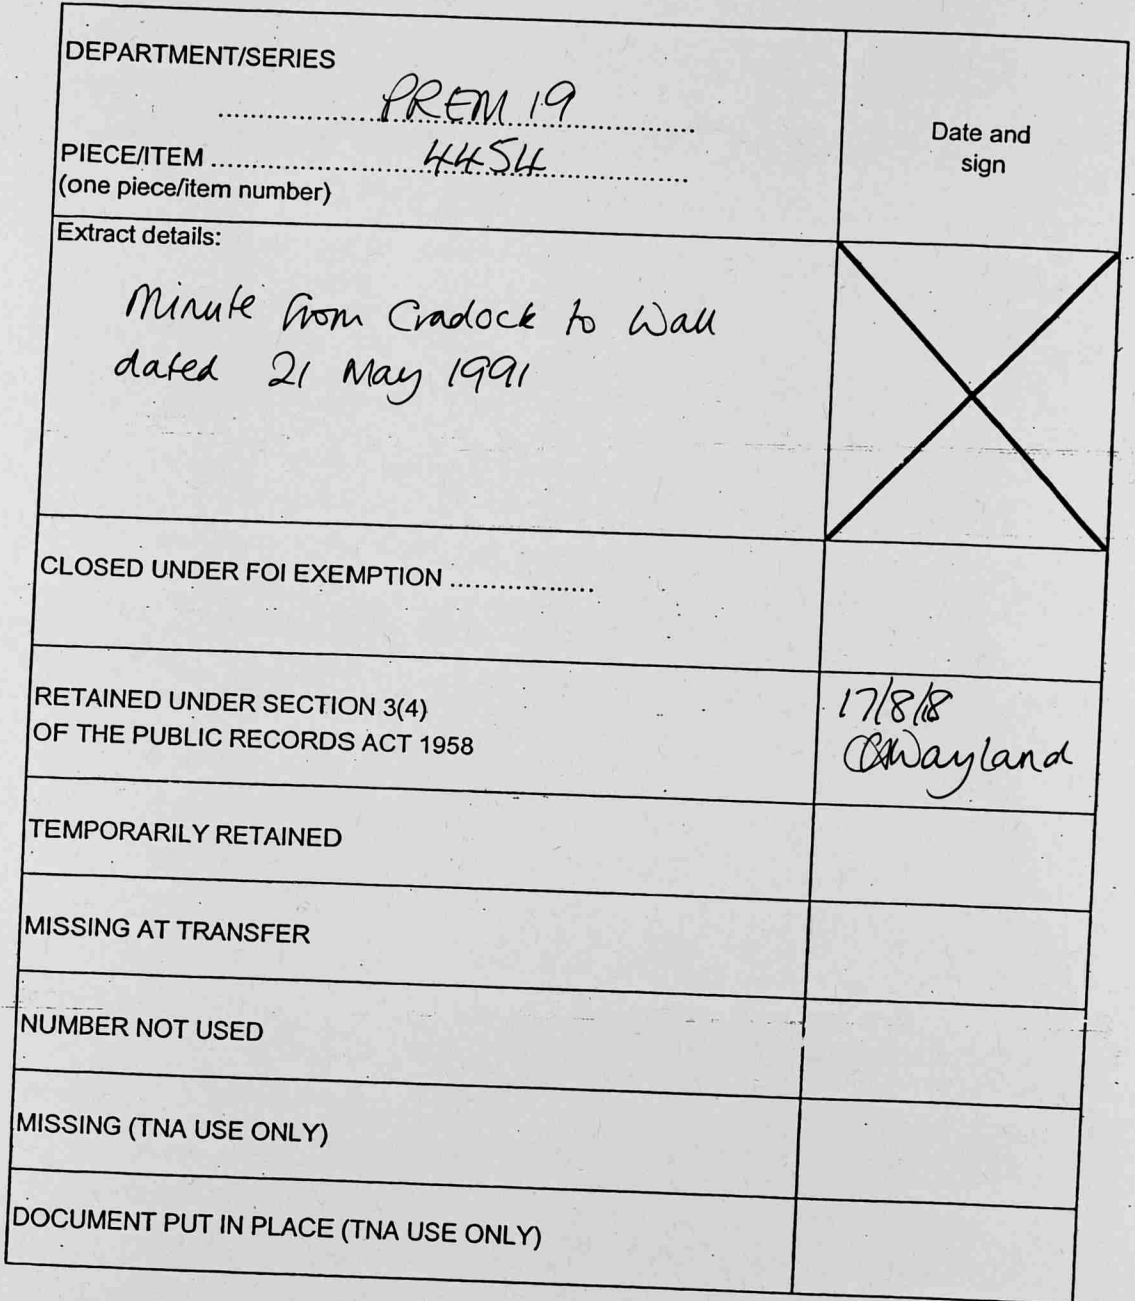 DEPARTMENT/SERIES
PREM 19
Date and
sign
PIECE/ITEM 4454
(one piece/item number)
Extract details:
Minute from Cradock to Wall
dated 21 May 1991
CLOSED UNDER FOI EXEMPTION ..................
RETAINED UNDER SECTION 3(4)
OF THE PUBLIC RECORDS ACT 1958
17/8/18
Wayland
TEMPORARILY RETAINED
MISSING AT TRANSFER
NUMBER NOT USED
MISSING (TNA USE ONLY)
DOCUMENT PUT IN PLACE (TNA USE ONLY)